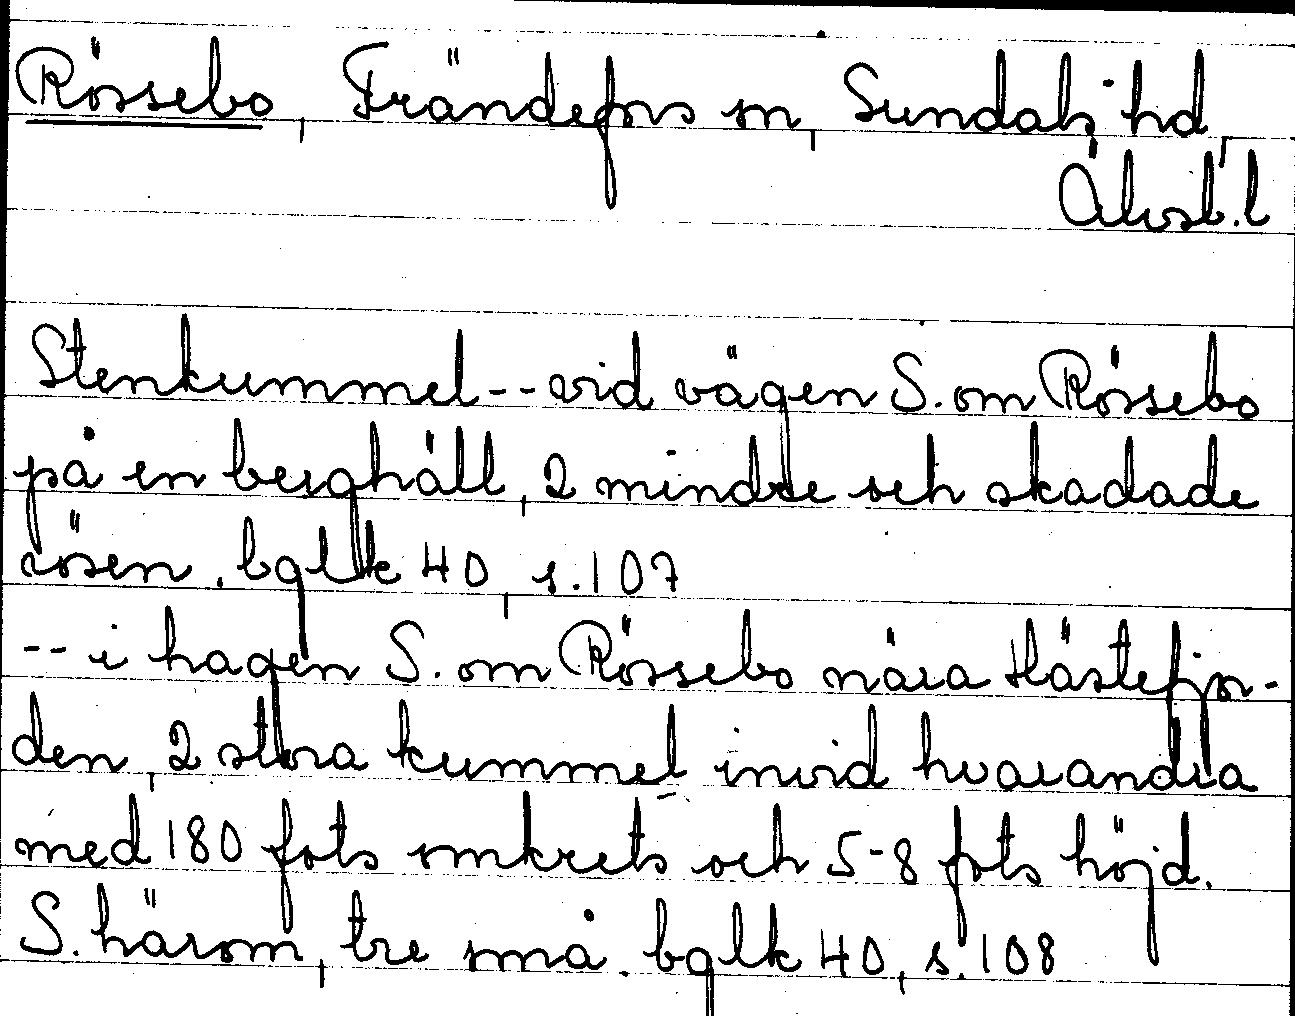 Rössebo, Frändefors sn, Sundals hd,
Älvsb.l
Stenkummel -- vid vägen S. om Rössebo
på en berghäll, 2 mindre och skadade
rösen. bglk 40, s.107
-- i hagen S. om Rössebo nära Hästefjor-
den, 2 stora kummel invid hvarandra
med 180 fots omkrets och 5-8 fots höjd.
S. härom, tre små. bglk 40, s.108